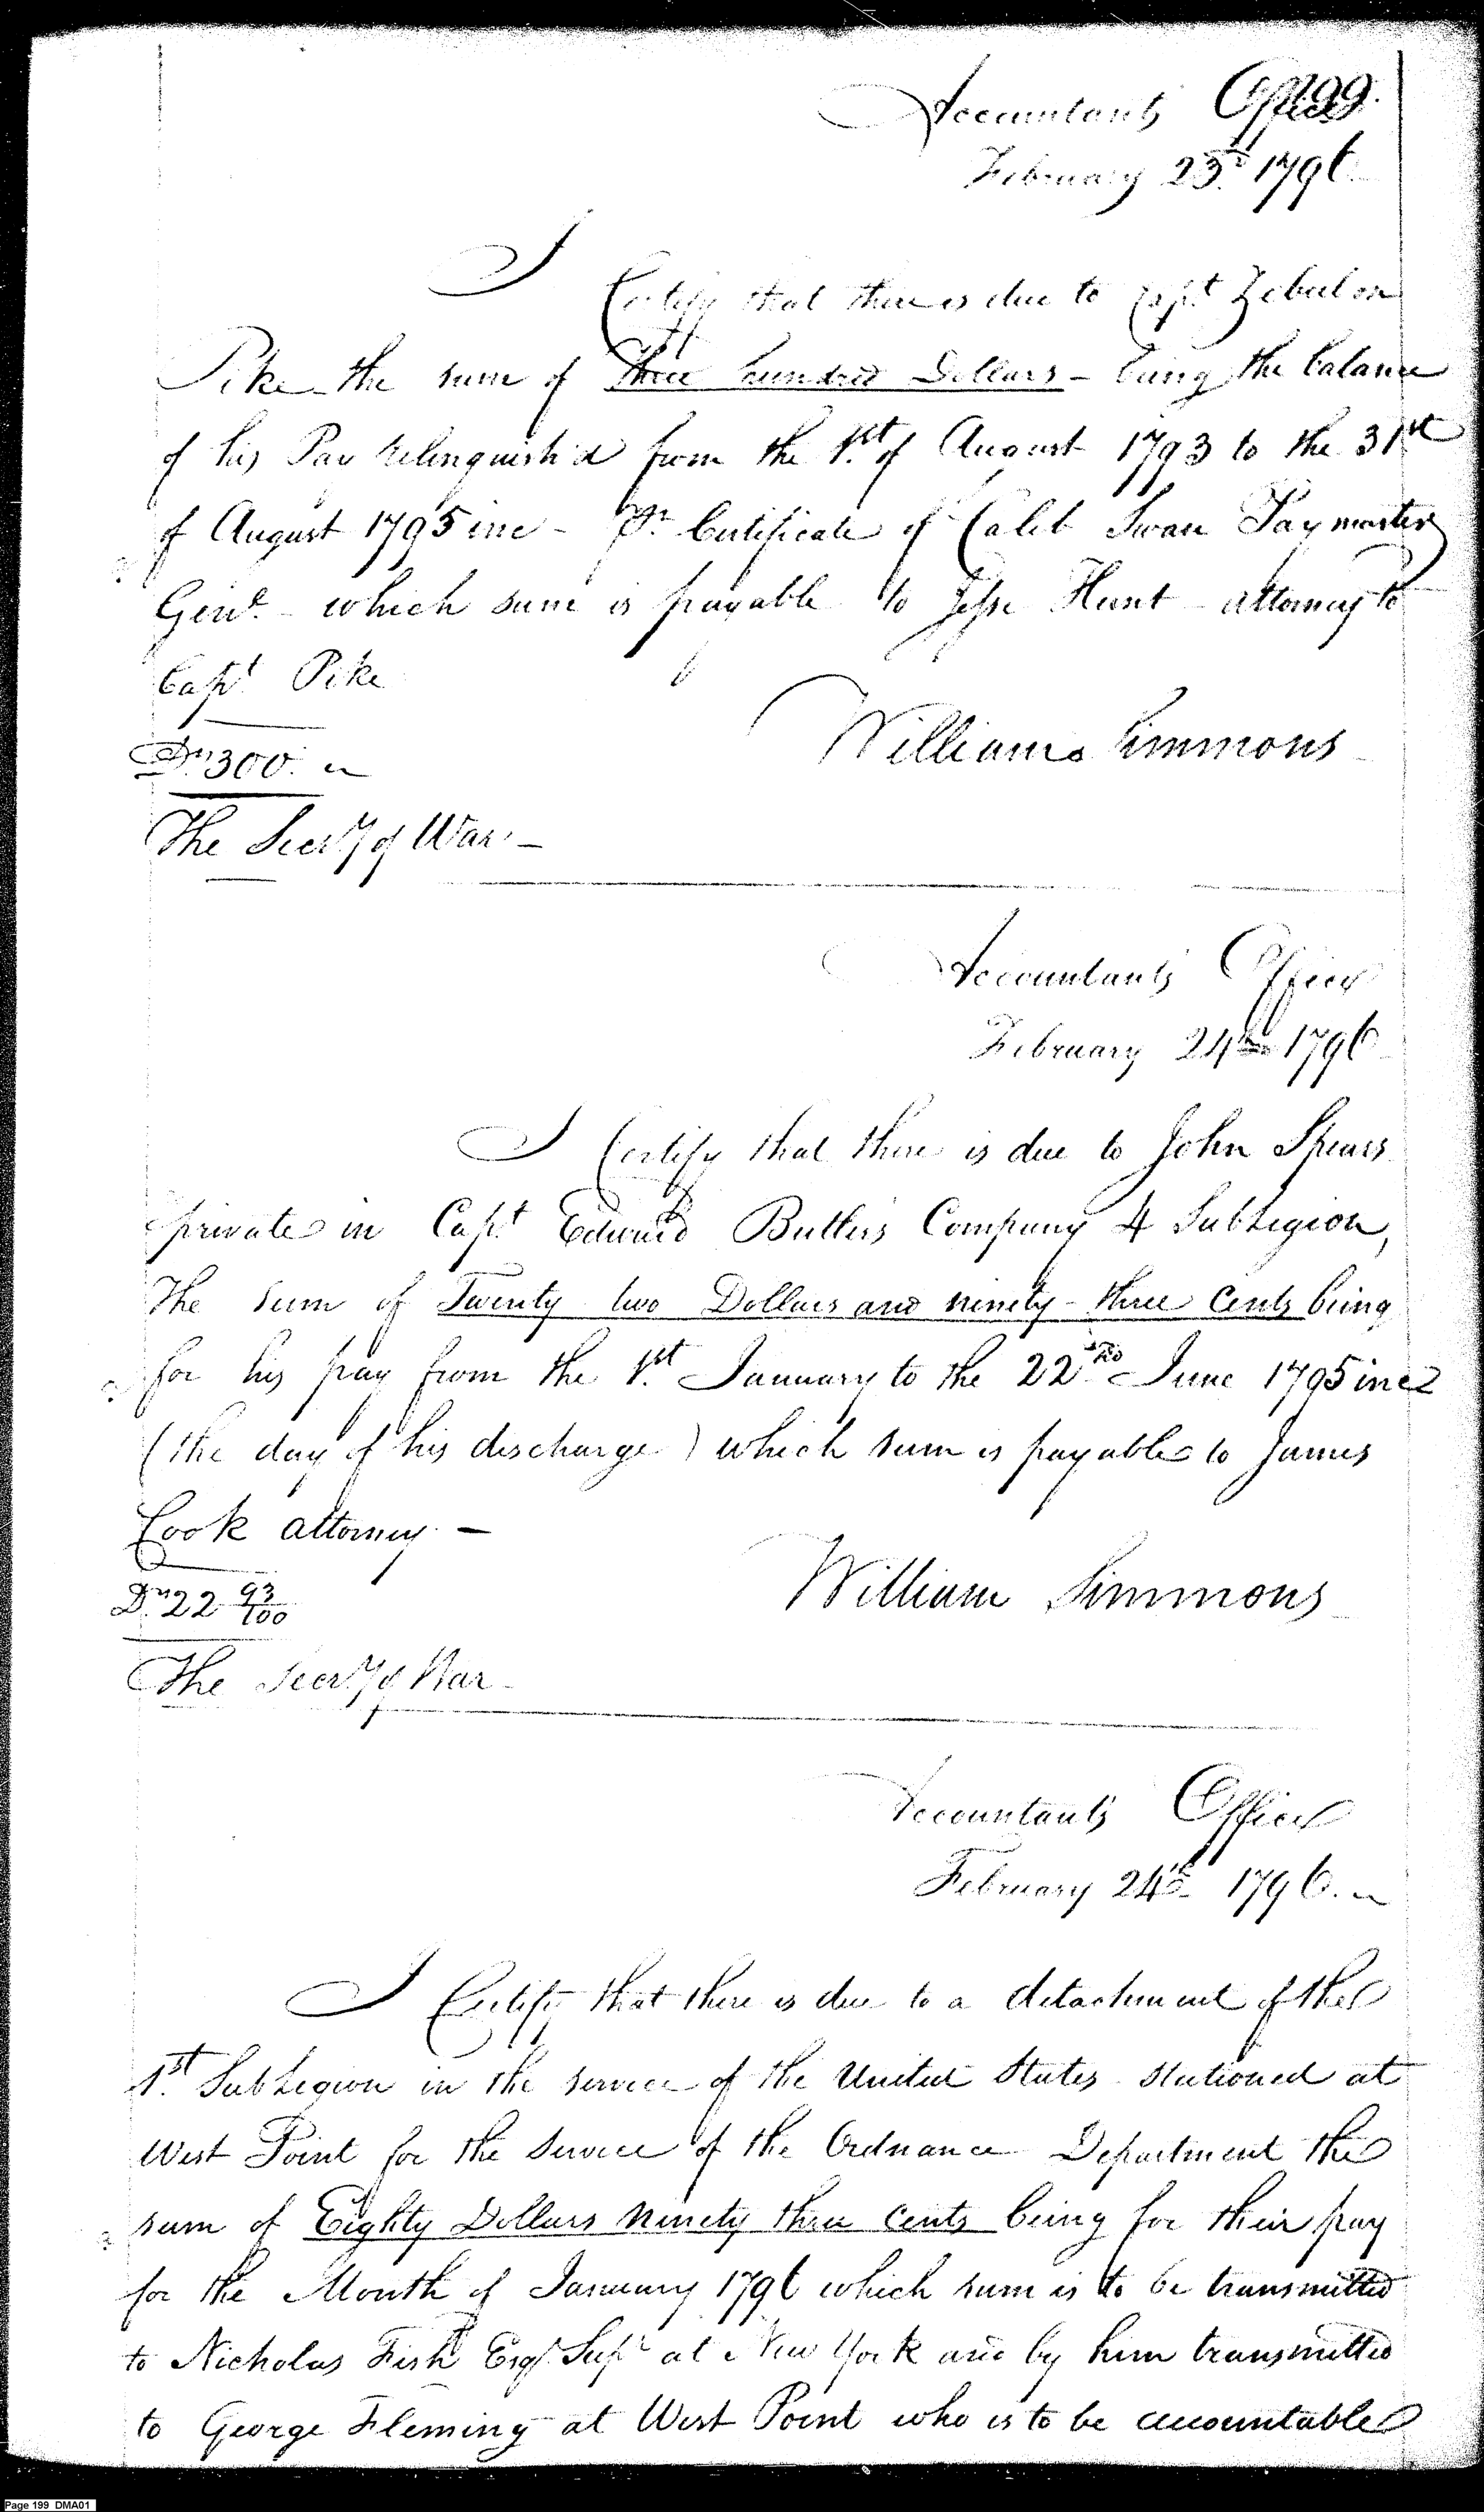 199.
Accountants Office
February 23d. 1796
I Certify that there is due to Capt Zebulon
Pike the sum of Three hundred Dollars - being the balance
of his Pay relinquish'd from the 1st. of August 1793 to the 31st
of August 1795 inc - Pr. Certificate of Caleb Swan Paymaster
Genl. which sum is payable to Jesse Hunt attorney to
Capt Pike
William Simmons
Drs 300.
The Secry of War. -
Accountants Office
February 24th 1796
I Certify that there is due to John Spears
private in Capt. Edward Butlers Company 4 SubLegion,
The sum of Twenty two Dollars and ninety-three Cents being
for his pay from the 1st. January to the 22nd June 1795 inc
(the day of his discharge) which sum is payable to James
Cook attorney. -
William Simmons
Drs. 22 93/100
The Secry of War -
Accountants Office
February 24th 1796.
I Certify that there is due to a detachment of the
1st. SubLegion in the service of the United States stationed at
West Point for the service of the Ordnance Department the
sum of Eighty Dollars ninety three Cents being for their pay
for the Month of January 1796 which sum is to be transmitted
to Nicholas Fish Esqr. Supr at New York and by him transmitted
to George Fleming at West Point who is to be accountable
Page 199 DMA01